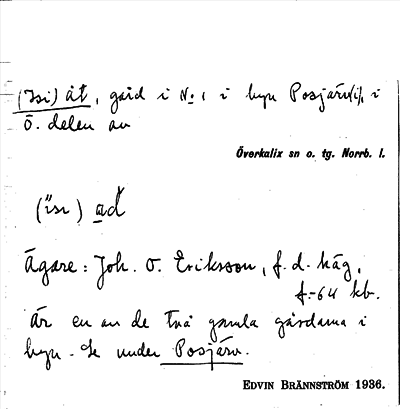 (Isi) åt, gård i No 1 i byn Posjärv i
ö. delen av
Överkalix sn o. tg. Norrb. l.
(ïsι) ad
Ägare: Joh. O. Eriksson, f. d. häg,
f. -64 kb.
Är en av de två gamla gårdarna i
byn. Se under Posjärv.
EDVIN BRÄNNSTRÖM 1936.